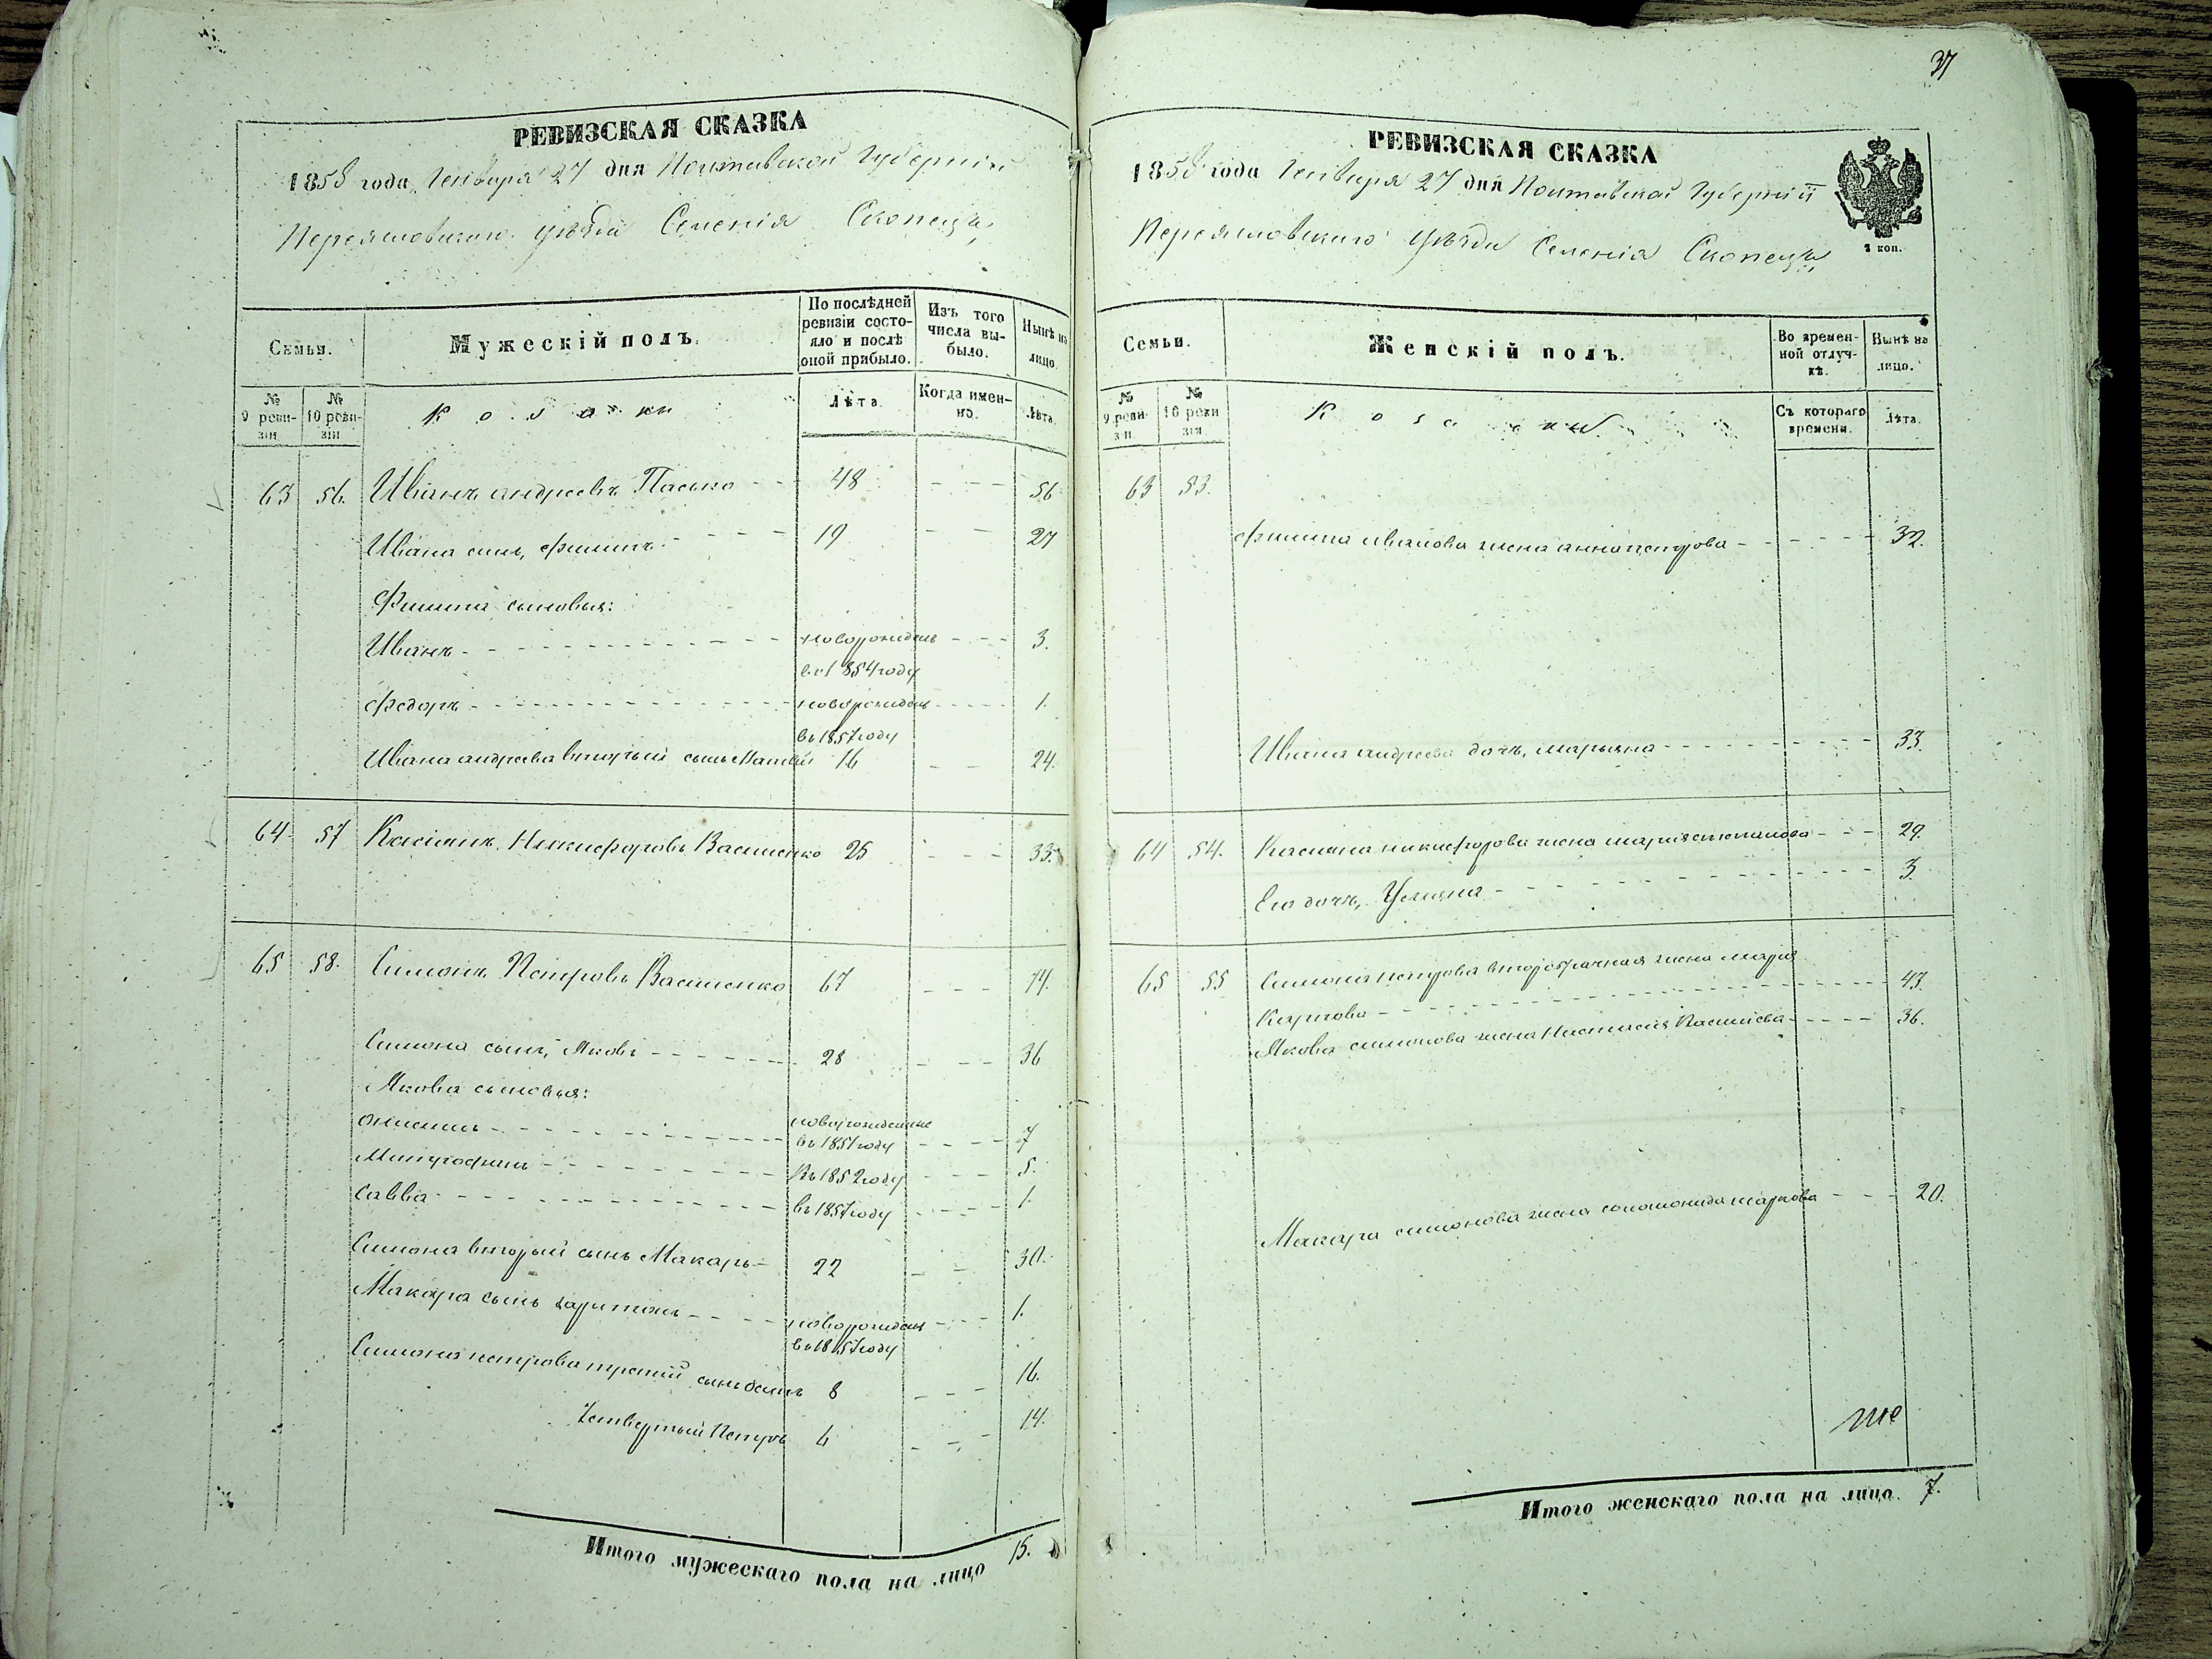 РЕВИЗСКАЯ СКАЗКА
1858 года Генваря 27 дня Полтавской Губерніи
Переяславскаго уѣзда Селенія Скопецъ
Семьи.
Мужескій полъ.
По послѣдней ревизіи состояло и послѣ оной прибыло.
Изъ того числа выбыло.
Нынѣ на лицо.
№ 9 ревизіи
№ 10 ревизіи
Козаки
Лѣта.
Когда именно.
Лѣта.
63 56. Иванъ андреевъ Пасько 48 56
Ивана сынъ, филипъ 19 27
Филипа сыновья:
Иванъ новорожденъ 3.
въ 1854 году
федоръ новорожденъ 1.
въ 1857 году
Ивана андреева вторый сынъ Матвій 16 24.
64 57 Касіянъ Никифоровъ Василенко 25 33.
65 58. Симонъ Петровъ Василенко 67 74.
Симона сынъ, Яковъ 28 36
Якова сыновья:
новорожденые
въ 1851 году 7
Митрофанъ въ 1852 году 5.
Савва въ 1857 году 1.
Симона вторый сынъ Макаръ 22 30.
Макара сынъ харитонъ новорожденъ 1.
въ 1857 году
Симона петрова третій сынъ 8 16.
Четвертый Петръ 6 14.
Итого мужескаго пола на лицо 15.
37
РЕВИЗСКАЯ СКАЗКА
1858 года Генваря 27 дня Полтавской Губерніи
Переяславскаго уѣзда Селенія Скопецъ
2 коп.
Семьи.
Женскій полъ.
Во временной отлучкѣ.
Нынѣ на лицо.
№ 9 ревизіи
№ 10 ревизіи
Козачки
Съ котораго времени.
Лѣта.
63 53.
филипа иванова жена анна петрова 32.
Ивана андреева дочь, марьяна 33.
64 54. Касіяна никифорова жена марія степанова 29.
Его дочь, Ульяна 3.
65 55 Симона петрова второбрачная жена марія
Карпова 43.
Якова симонова жена Настасія Василіева 36.
Макара симонова жена соломонида маркова 20.
Итого женскаго пола на лицо. 7.